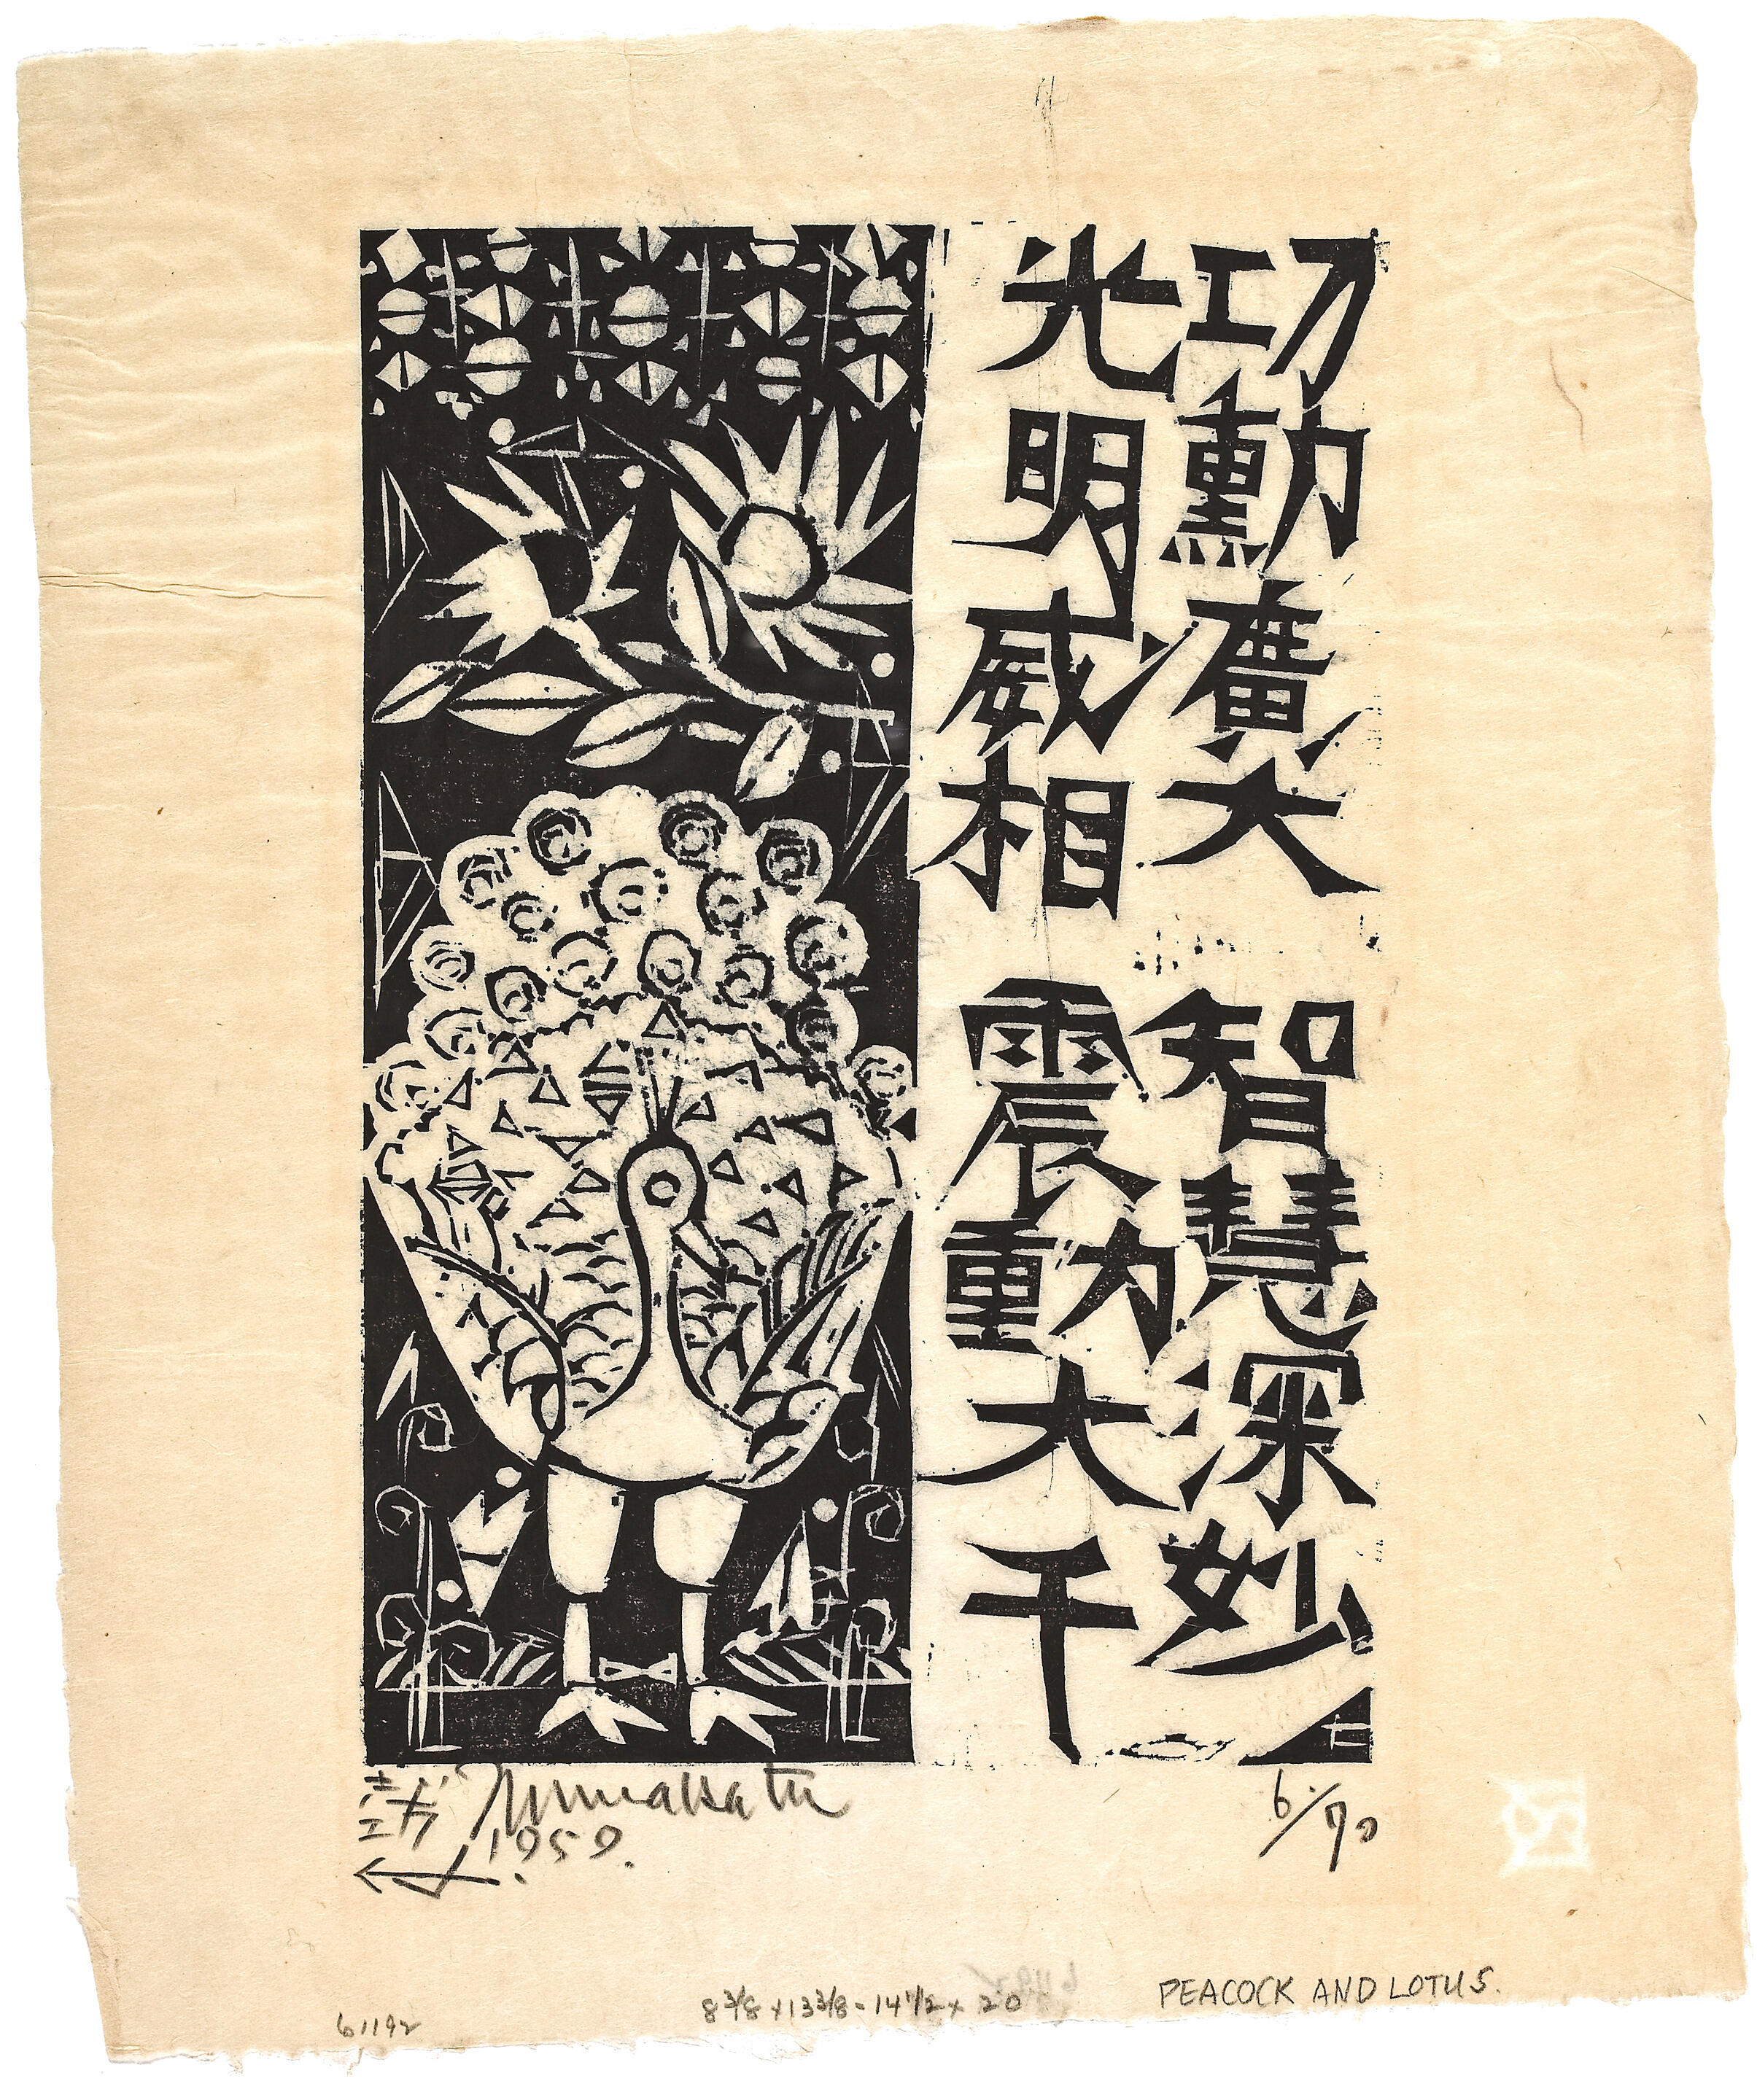 功勳廣大 智慧深妙
光明威相 震動大千
Munakata
1959.
6/70
61192
8 3/8 x 13 3/8 - 14 1/2 x 20
PEACOCK AND LOTUS.